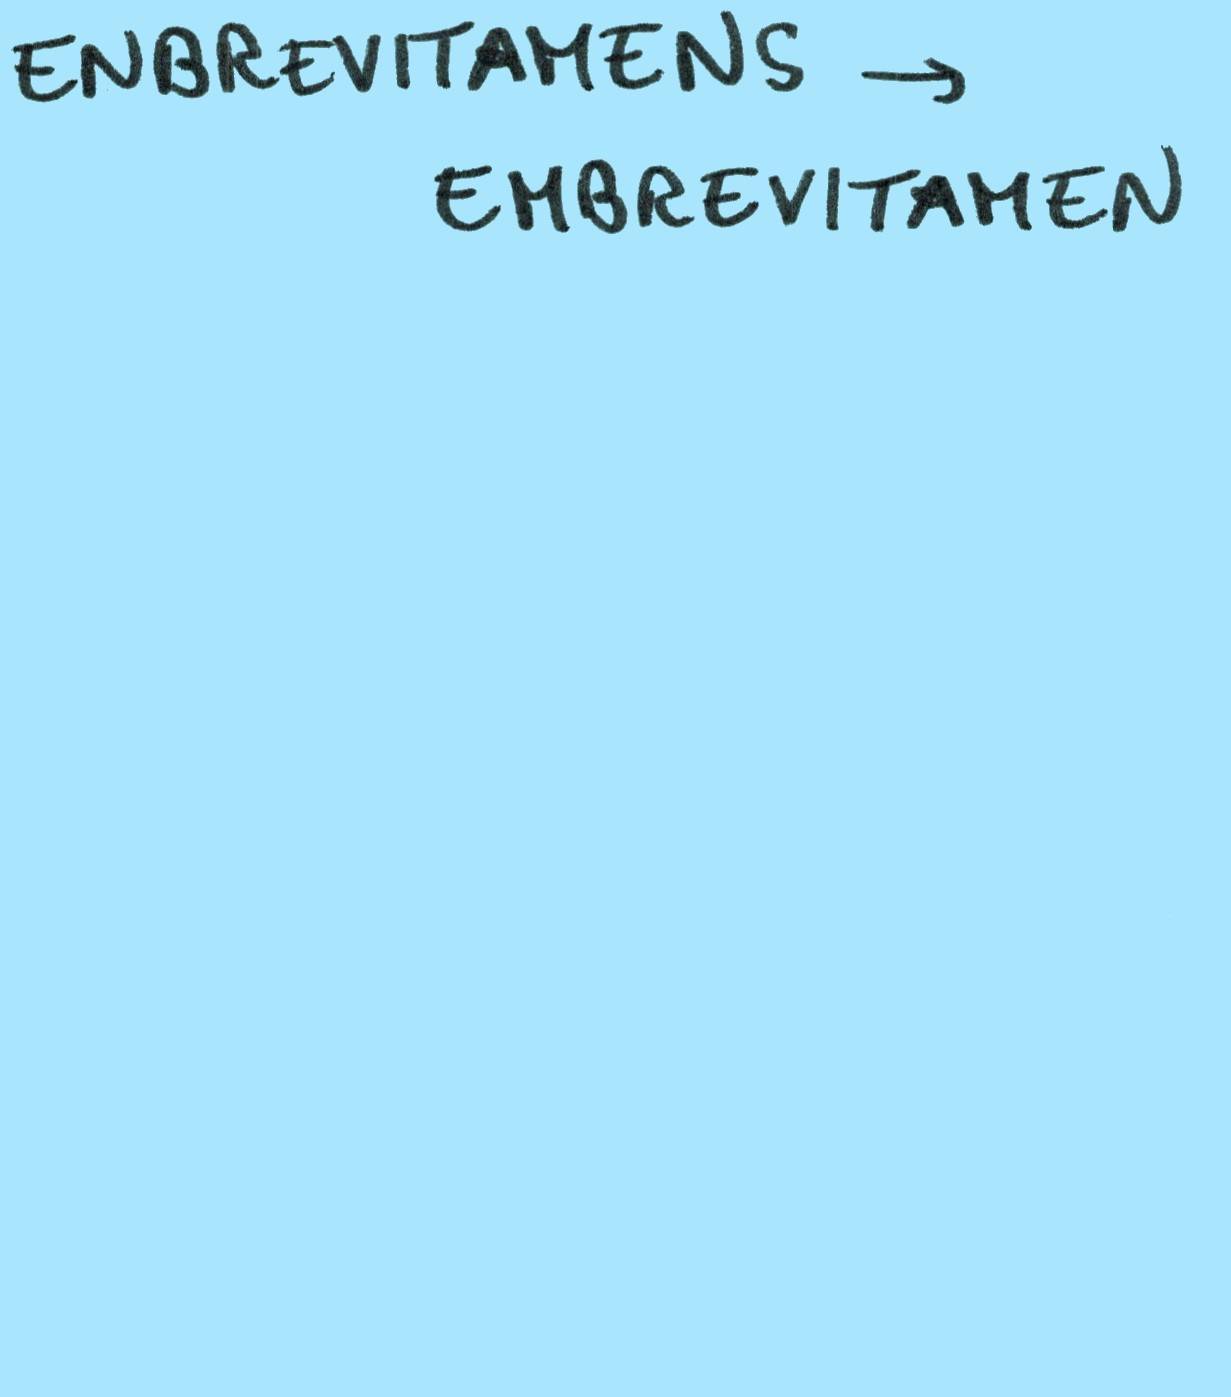 ENBREVITAMENS →
EMBREVITAMEN